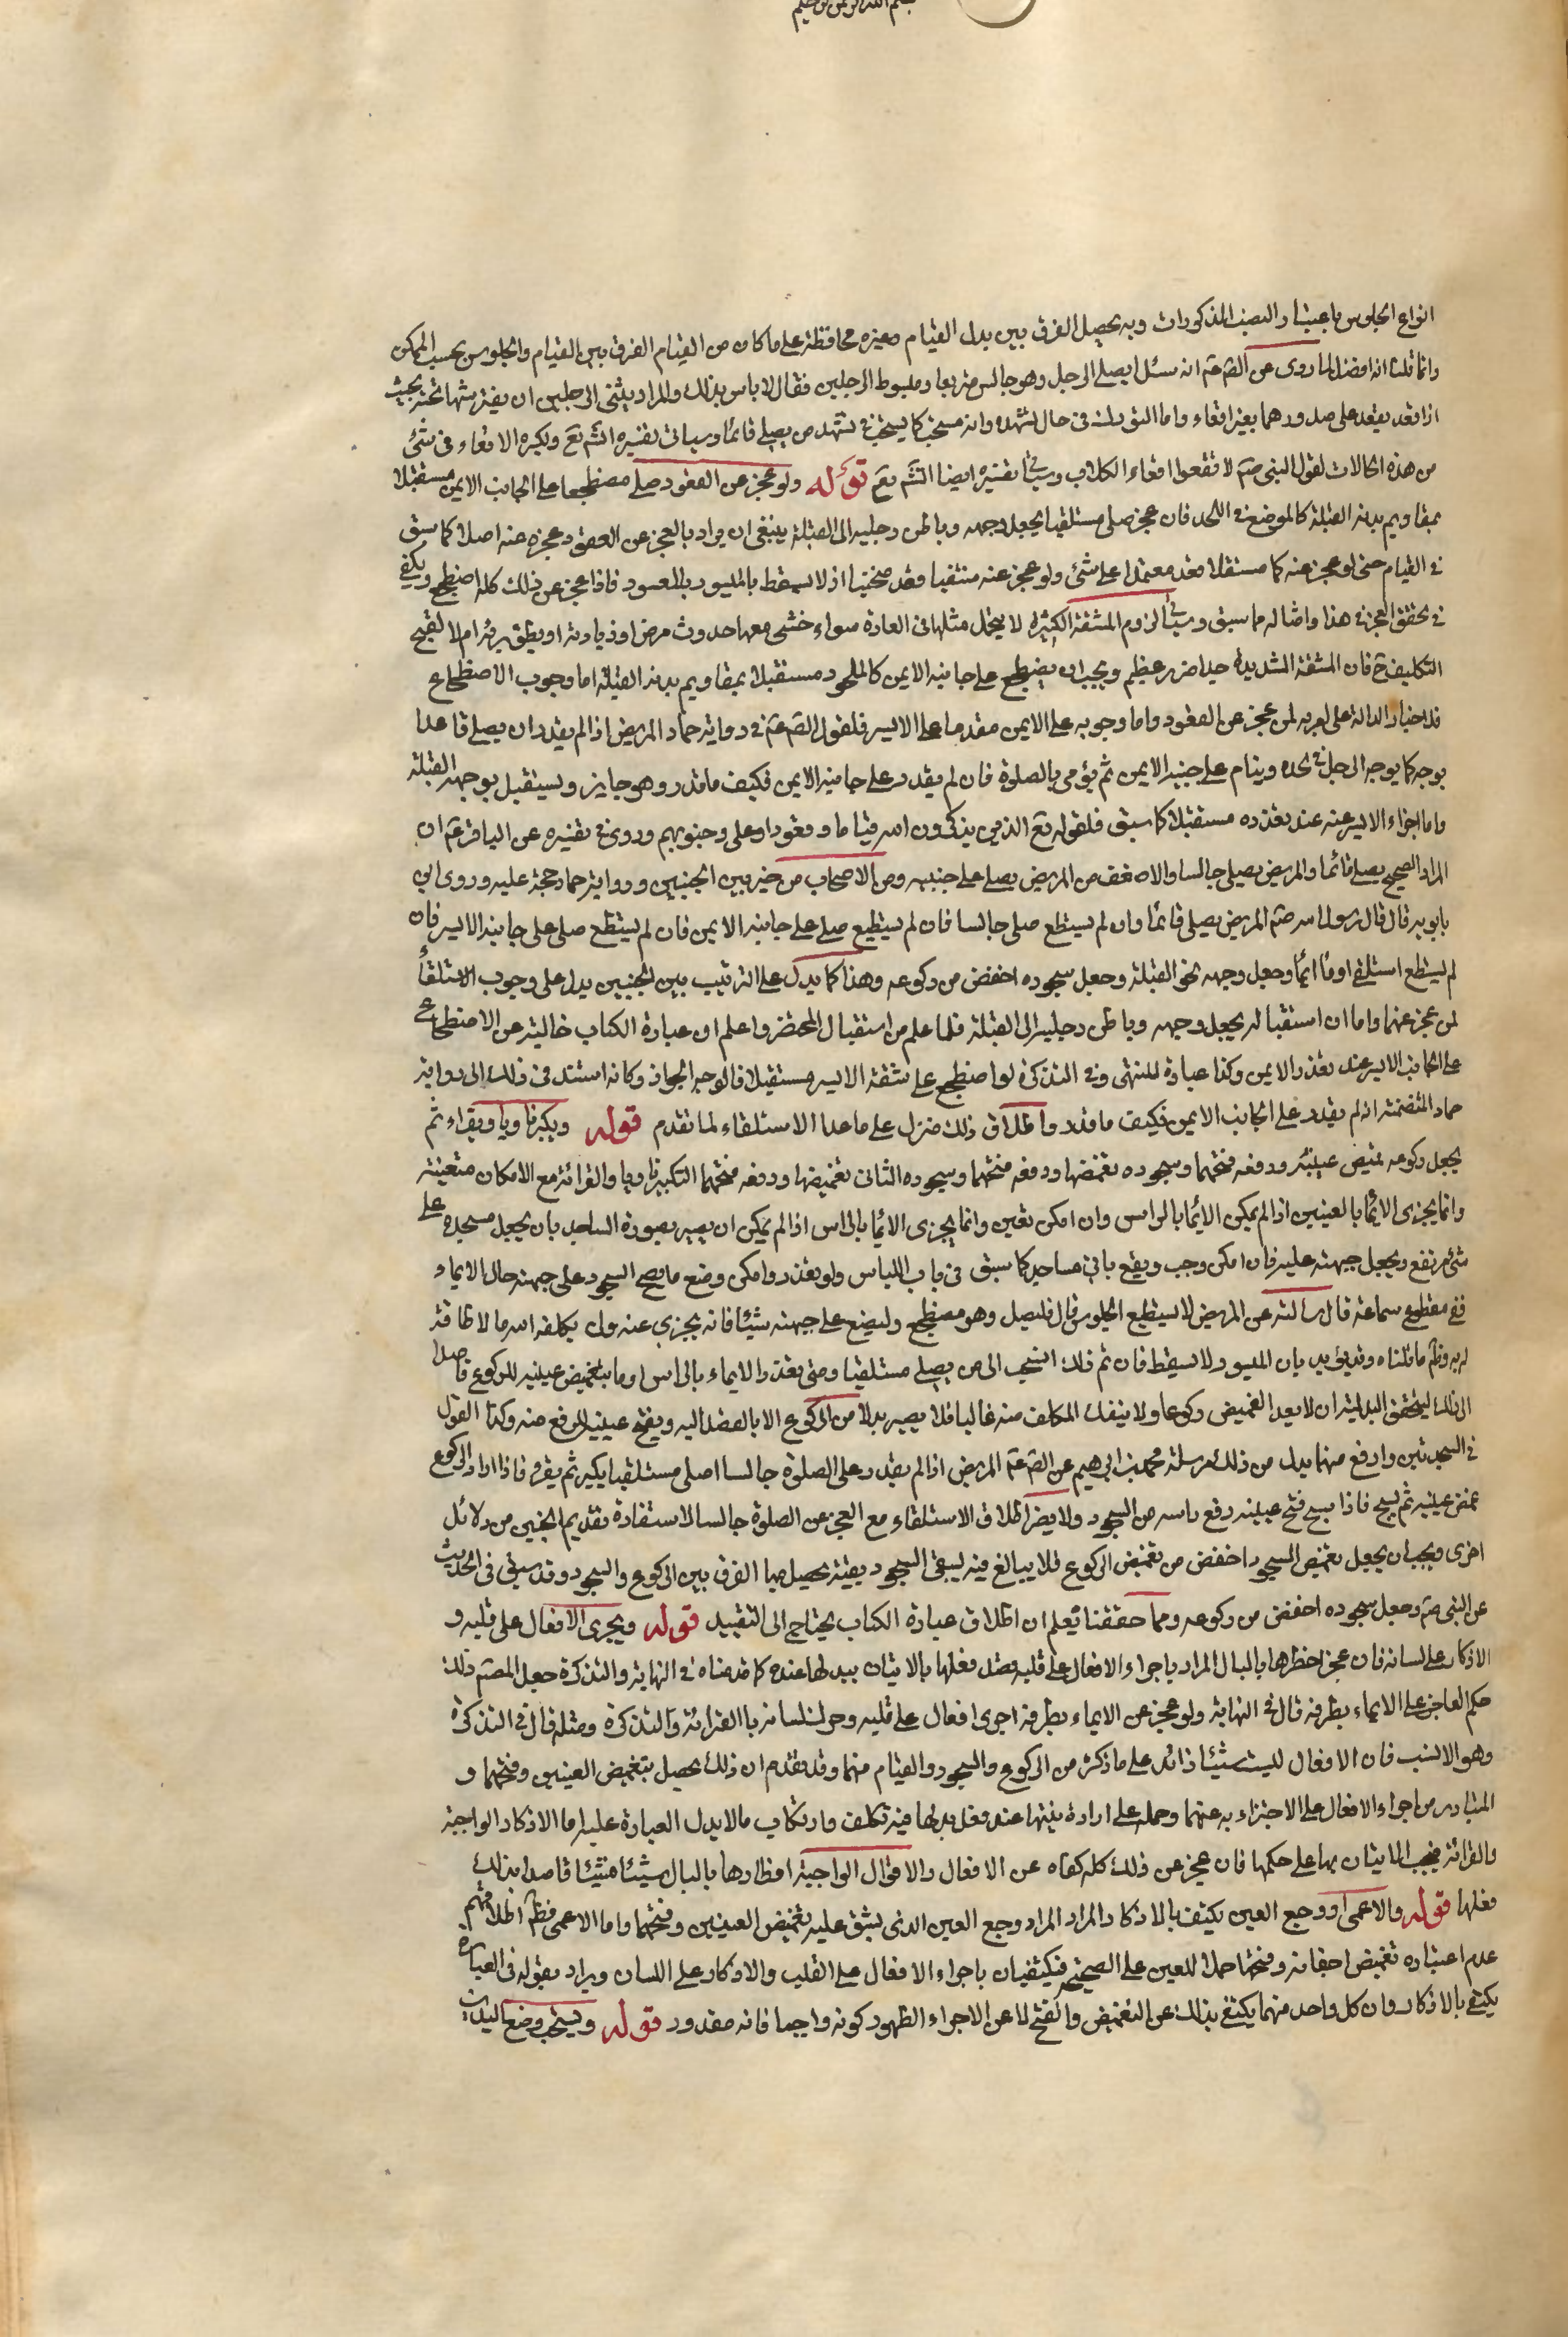 بسم الله الرحمن الرحيم
انواع الجلوس باعتبار النصب المذكورات وبه يحصل الفرق بين بدل القيام وغيره محافظة على ما كان من القيام الفرق بين القيام والجلوس بحسب الممكن
وانما قلنا انه افضل لما روى عن الصّ عم انه سئل ايصلى الرجل وهو جالس متربعا ومبسوط الرجلين فقال لا باس بذلك والمراد بثنى الرجلين ان يفترشهما تحته بحيث
اذا قعد يقعد على صدورهما بغير اقعاء واما التورك في حال تشهده وانه مستحب كما يستحب في تشهد من يصلي قائما وسياتى تفسيره انشَ تعَ ويكره الاقعاء في شئ
من هذه الحالات لقول النبى صَم لا تقعوا اقعاء الكلاب وسياتى تفسيره ايضا انشَ تعَ قوله ولو عجز عن القعود صلى مضطجعا على الجانب الايمن مستقبلا
بمقاديم بدنه القبلة كالموضع في اللحد فان عجز صلى مستلقيا يجعل وجهه وباطن رجليه الى القبلة ينبغى ان يراد بالعجز عن القعود عجزه عنه اصلا كما سبق
في القيام حتى لو عجز عنه كما مستقلا قعد معتمدا على شئ ولو عجز عنه منتصبا قعد منحنيا اذ لا يسقط بالميسور بالمعسور فاذا عجز عن ذلك كله اضطجع ويكفى
في تحقق العجز في هذا وامثاله مما سبق وسياتى لزوم المشقة الكثيره لا يتحمل مثلها في العادة سواء خشى معها حدوث مرض او زيادته او بطؤ برئه ام لا لقبح
التكليف ح فان المشقة الشديدة جدا ضرر عظيم ويجب ان يضطجع على جانبه الايمن كالملحود مستقبلا بمقاديم بدنه القبلة اما وجوب الاضطجاع
فللاخبار الدالة على امر به لمن عجز عن القعود واما وجوبه على الايمن مقدما على الايسر فلقول الصّ عم في رواية حماد المريض اذا لم يقدر ان يصلى قاعدا
يوجه كما يوجه الرجل في لحده وينام على جنبه الايمن ثم يؤمى بالصلوة فان لم يقدر على جانبه الايمن فكيف ما قدر وهو جايز ويستقبل بوجهه القبلة
واما اجزاء الايسر عنه عند تعذره مستقبلا كما سبق فلقوله تعَ الذين يذكرون الله قياما وقعودا وعلى جنوبهم وروى في تفسيره عن الباقر عم ان
المراد الصحيح يصلى قائما والمريض يصلي جالسا والاضعف من المريض يصلي على جنبيه ومن الاصحاب من خير بين الجنبين ورواية حماد حجة عليه وروى ابن
بابويه قال قال رسول الله صَم المريض يصلى قائما وان لم يستطع صلى جالسا فان لم يستطيع صلى على جانبه الايمن فان لم يستطع صلى على جانبه الايسر فان
لم يستطع استلقى اوما ايماء وجعل وجهه نحو القبلة وجعل سجوده اخفض من ركوعه وهذا كما يدل على الترتيب بين الجنبين يدل على وجوب الاستلقاء
لمن عجز عنهما واما ان استقباله يجعل وجهه وباطن رجليه الى القبلة فلما علم من استقبال المحتضر واعلم ان عبارة الكتاب خالية عن الاضطجاع
على الجانب الايسر عند تعذر الايمن وكذا عبارة المنتهى وفي التذكرة لو اضطجع على شقه الايسر مستقبلا فالوجه الجواز وكانه استند في ذلك الى رواية
حماد المتضمنة اذ لم يقدر على الجانب الايمن فكيف ما قدر واطلاق ذلك منزل على ما عدا الاستلقاء لما تقدم قوله ويكبر ناويا ويقراء ثم
يجعل ركوعه تغميض عينيه ورفعه فتحهما وسجوده تغمضها ورفعه فتحهما وسجوده الثانى تغميضها ورفعه فتحهما التكبير ناويا والقرائة مع الامكان متعينة
وانما يجزى الايماء بالعينين اذا لم يمكن الايماء بالراس وان امكن تعين وانما يجزى الايماء بالراس اذا لم يمكن ان يصير بصورة الساجد بان يجعل مسجده على
شئ مرتفع ويجعل جبهته عليه فان امكن وجب ويقع باقى مساجد كما سبق في باب اللباس ولو تعذر وامكن وضع ما يصح السجود على جبهته حال الايماء
ففي مقطوع سماعة قال سالته عن المريض لا يستطيع الجلوس قال فليصل وهو مضطجع وليضع على جبهته شيئا فانه يجزى عنه ولن يكلفه الله ما لا طاقة
له به وظَم ما قلناه ويؤيد بان الميسور لا يسقط فان ثم ذلك انسحب الى من يصلي مستلقيا ومتى تعذر الايماء بالراس اوما بتغميض عينيه للركوع قاصدا
الى ذلك ليتحقق البدلية ان لا يعد التغميض ركوعا ولا ينفك المكلف منه غالبا فلا يصير بدلا من الركوع الا بالقصد اليه ويفتح عينيه للرفع منه وكذا القول
في السجدتين والرفع منهما يدل من ذلك مرسلة محمد بن ابراهيم عن الصّ عم المريض اذا لم يقدر على الصلوة جالسا صلى مستلقيا يكبر ثم يقرء فاذا اراد الركوع
غمض عينيه ثم يسبح فاذا سبح فتح عينيه رفع راسه من السجود ولا يضر اطلاق الاستلقاء مع العجز عن الصلوة جالسا لاستفادة تقديم الجنبين من دلائل
اخرى ويجب ان يجعل تغميض السجود اخفض من تغميض الركوع فلا يبالغ فيه ليبقى السجود بقية يحصل بها الفرق بين الركوع والسجود وقد سبق في الحديث
عن النبى صَم وجعل سجوده اخفض من ركوعه ومما حققنا يعلم ان اطلاق عبارة الكتاب يحتاج الى التقييد قوله ويجرى الافعال على قلبه و
الاذكار على لسانه فان عجز اخطرها بالبال المراد باجراء الافعال على قلبه قصد فعلها بالاتيان ببدلها عنده كما قدمناه في النهاية والتذكرة جعل المصم ذلك
حكم العاجز على الايماء بطرفه قال في النهاية ولو عجز عن الايماء بطرفه اجرى افعال على قلبه وحرك لسانه بالقرائة والتذكرة ومثله قال في التذكرة
وهو الانسب فان الافعال ليست شيئا زائد على ما ذكر من الركوع والسجود والقيام منهما وقد تقدم ان ذلك يحصل بتغميض العينين وفتحهما و
المتبادر من اجراء الافعال على الاجتزاء به عنهما وحمله على ارادة نيتها عند فعل بدلها فيه تكلف وارتكاب ما لا يدل العبارة عليه اما الاذكار الواجبة
والقرائة فيجب الاتيان بها على حكمها فان عجز عن ذلك كله كفاه عن الافعال والاقوال الواجبة اخطارها بالبال شيئا فشيئا قاصدا بذلك
فعلها قوله والاعمى او وجع العين يكتفى بالاذكار المراد وجع العين الذى يشق عليه تغميض العينين وفتحهما واما الاعمى فظَم اطلاقهم
عدم اعتباره تغميض اجفانه وفتحها حملا للعين على الصحيح فيكتفيان باجراء الافعال على القلب والاذكار على اللسان ويراد بقوله في العبارة
يكتفى بالاذكار وان كل واحد منهما يكتفى بذلك عن التغميض والفتح لا عن الاجراء الظهور كونه واجبا فانه مقدور قوله ويستحب وضع اليدين